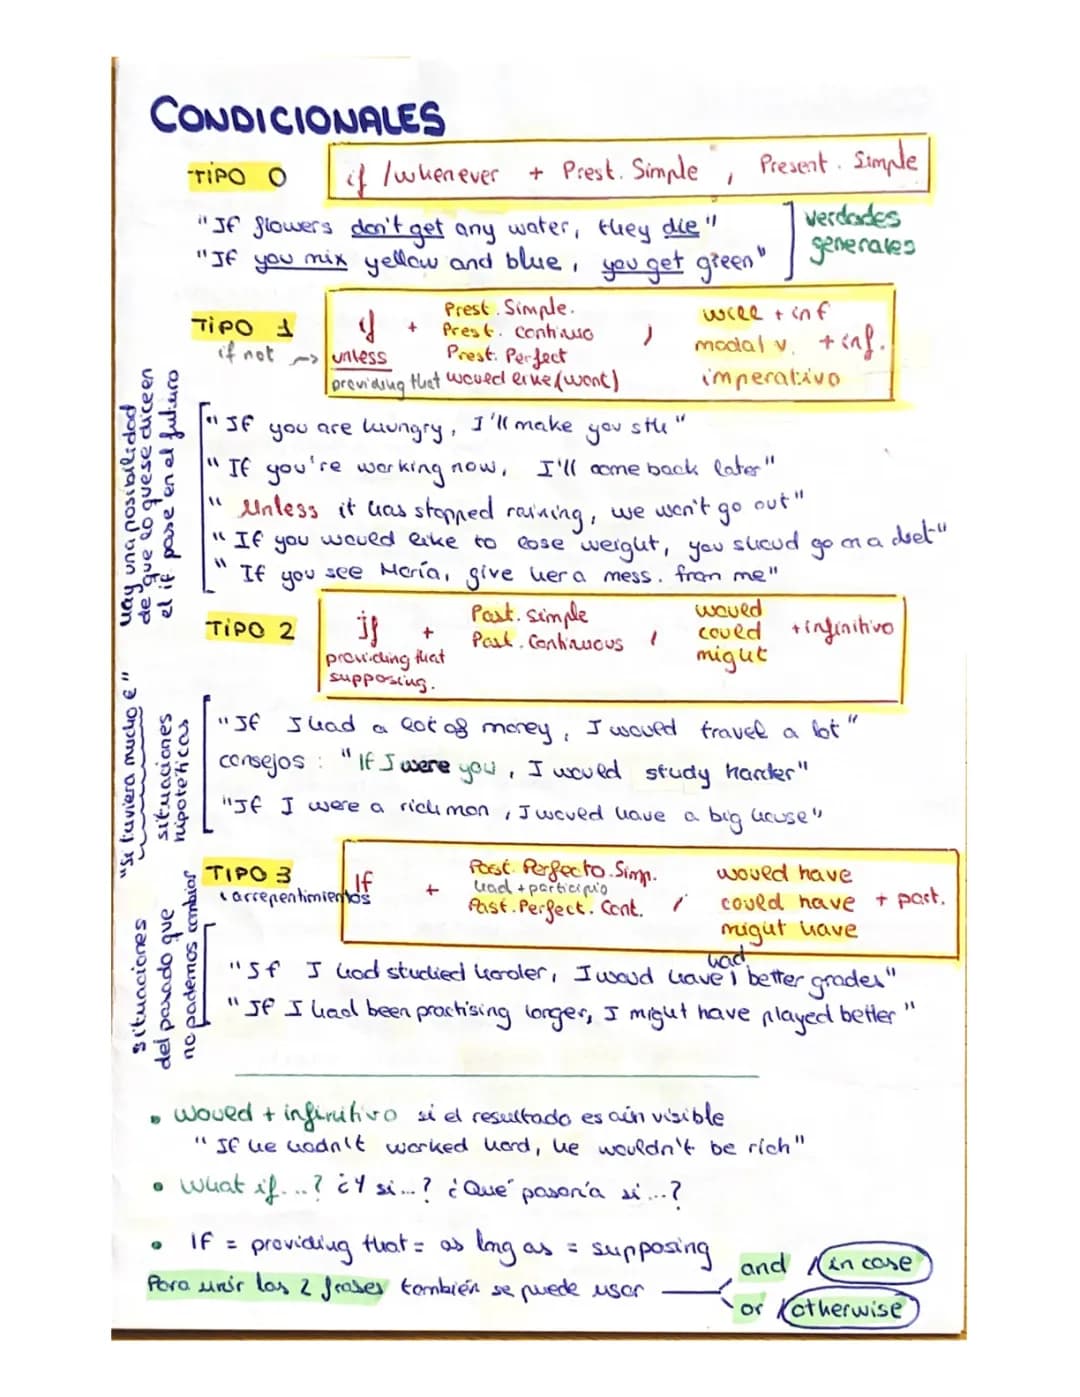 CONDICIONALES
TIPO 0
if / whenever + Prest. Simple , Present. Simple
"If flowers don't get any water, they die"
"If you mix yellow and blue, you get green"
verdades
generales
TIPO 1
if not → unless
if +
providing that
Prest. Simple.
Prest. Continuo
Prest. Perfect
would like (want)
,
will + inf
modal v. + inf.
imperativo
hay una posibilidad
de que lo que se dice en
el if pase en el futuro
"If you are hungry, I'll make you sth"
"If you're working now, I'll come back later"
"Unless it has stopped raining, we won't go out"
"If you would like to lose weight, you shoud go on a diet"
"If you see María, give her a mess. from me"
TIPO 2
if +
providing that
supposing.
Past. Simple
Past. Continuous ,
would
could + infinitivo
might
"Si tuviera mucho €"
situaciones
hipotéticas
"If I had a lot of money, I would travel a lot"
consejos: "If I were you, I would study harder"
"If I were a rich man, I would have a big house"
TIPO 3
arrepentimientos
If +
Past. Perfecto. Simp.
had + participio
Past. Perfect. Cont. ,
would have
could have + part.
might have
situaciones
del pasado que
no podemos cambiar
had
"If I had studied harder, I woud have better grades"
"If I had been practising longer, I might have played better"
• would + infinitivo si el resultado es aún visible
"If he hadn't worked hard, he wouldn't be rich"
• What if...? ¿Y si...? ¿Qué pasaría si...?
• If = providing that = as long as = supposing
Para unir las 2 frases también se puede usar
and / in case
or / otherwise